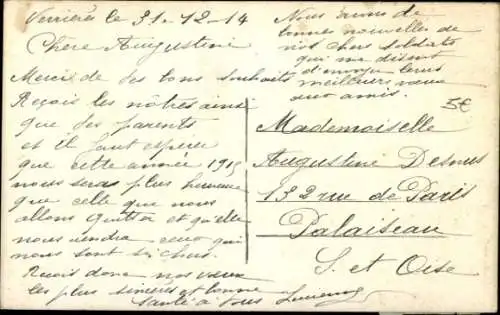 Verrières le 31-12-14
Chère Augustine
Merci de tes bons souhaits
Reçois les nôtres ainsi
que tes parents
et il faut espérer
que cette année 1915
nous sera plus heureuse
que celle que nous
allons quitter et qu'elle
nous rendra ceux qui
nous sont si chers.
Reçois donc nos vœux
les plus sincères et bonne
santé à tous
Nous avons de
bonnes nouvelles de
nos chers soldats
qui me disent
d'envoyer leurs
meilleurs vœux
aux amis.
5€
Mademoiselle
Augustine
132 rue de Paris
Palaiseau
S. et Oise